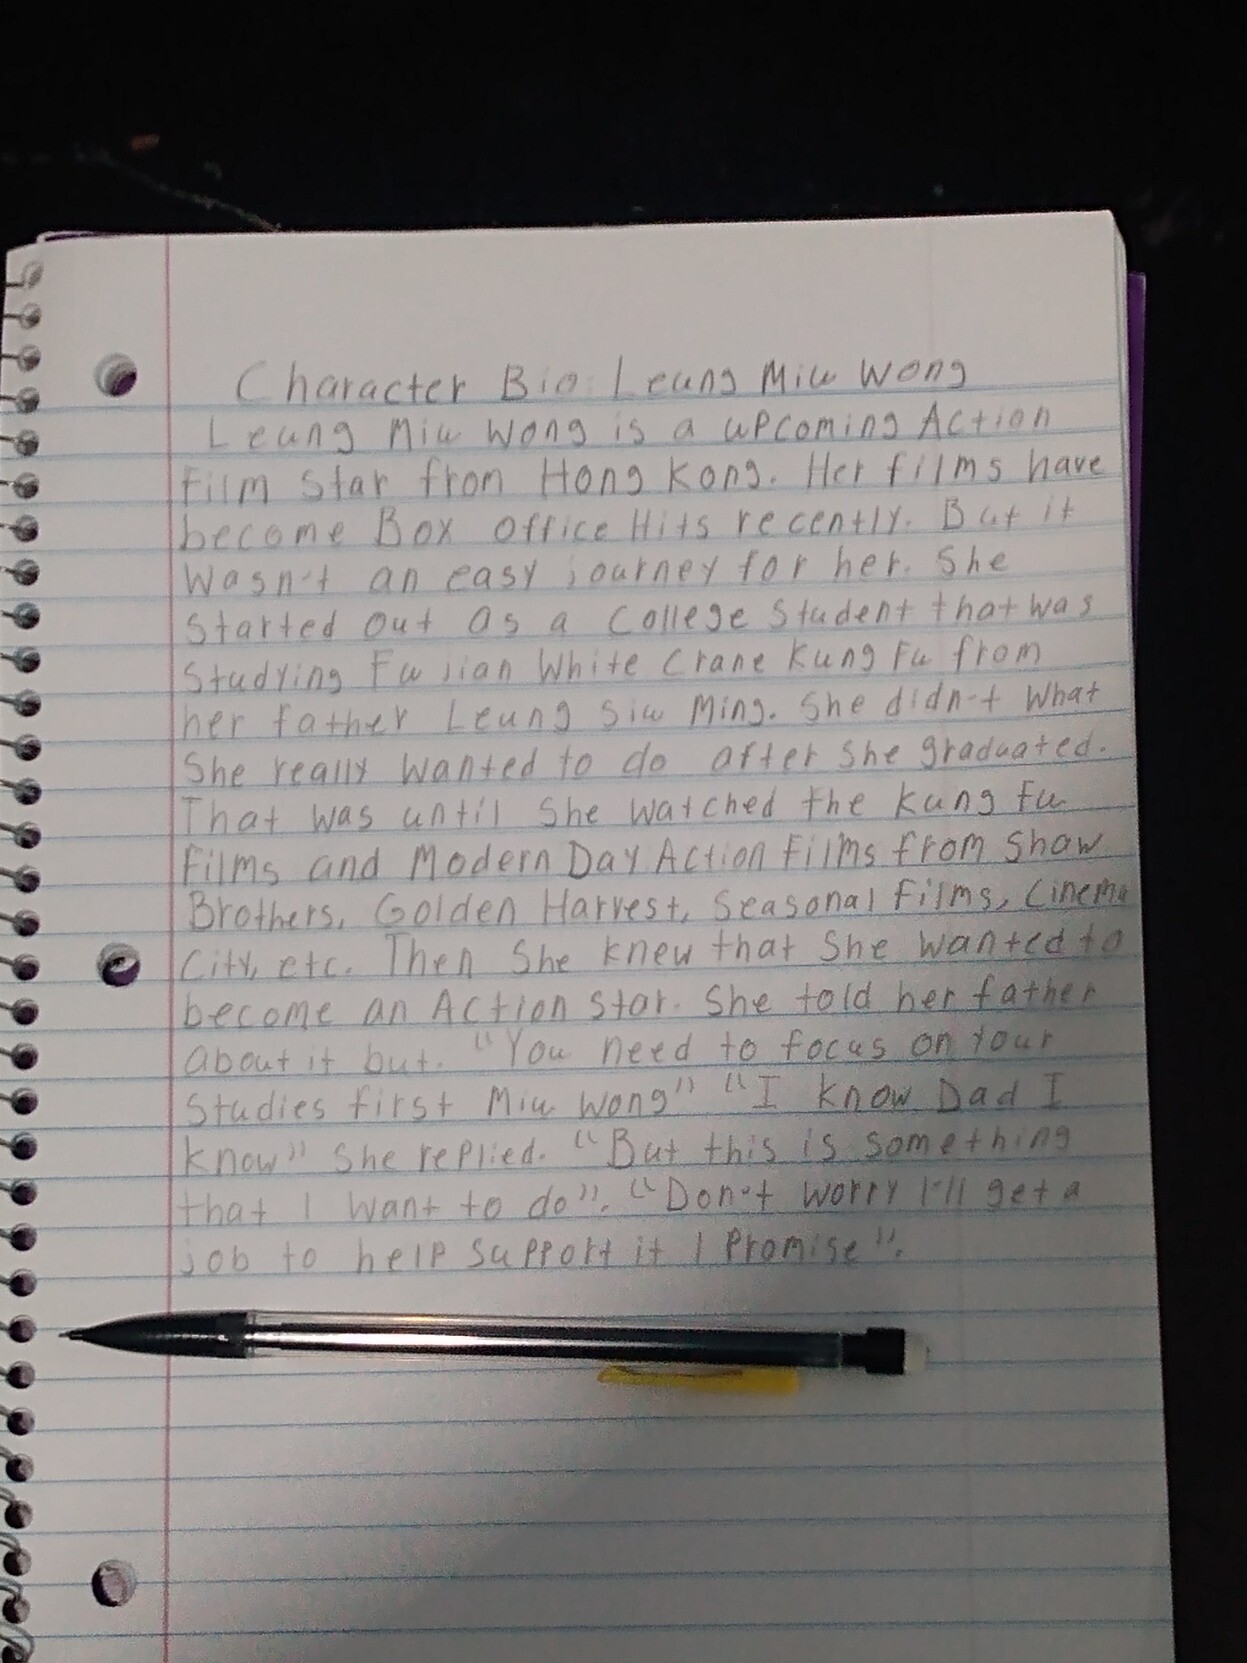 Character Bio: Leung Miu Wong
Leung Miu Wong is a upcoming Action
Film Star from Hong Kong. Her films have
become Box Office Hits recently. But it
wasn't an easy journey for her. She
started out as a College Student that was
Studying Fujian White Crane Kung Fu from
her father Leung Siu Ming. She didn't what
She really wanted to do after she graduated.
That was until she watched the kung fu
Films and Modern Day Action Films from Shaw
Brothers, Golden Harvest, Seasonal Films, Cinema
City, etc. Then She knew that She wanted to
become an Action Star. She told her father
about it but. "You need to focus on your
Studies first Miu Wong" "I know Dad I
know" She replied. "But this is something
that I want to do". "Don't worry I'll get a
job to help support it I Promise".